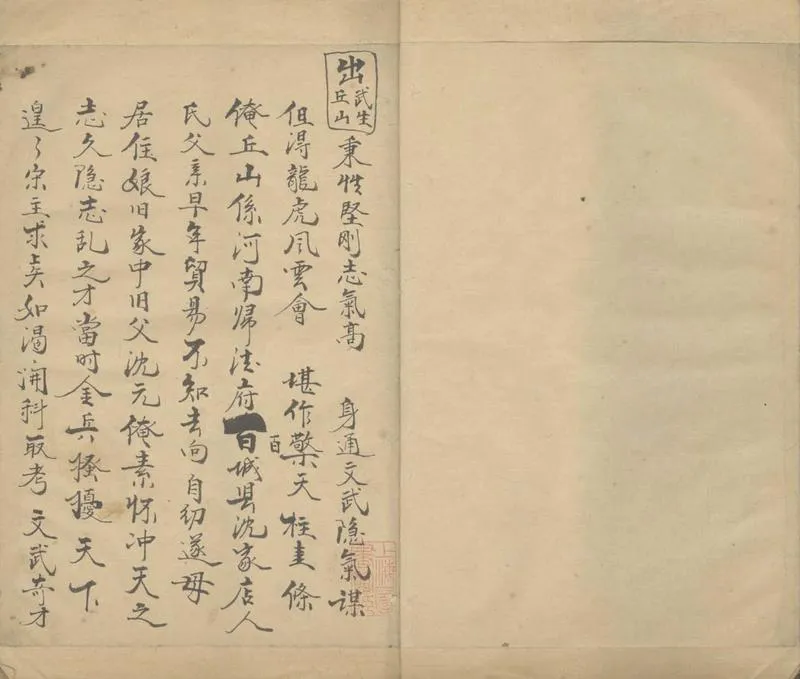 出武生丘山 秉性堅刚志氣高 身通文武隐氣謀
但淂龍虎風雲會 堪作擎天柱圭條
俺丘山係河南帰法府百城县沈家店人
氏父亲早年貿易不知去向自幼遂母
居住娘旧家中旧父沈元俺素怀冲天之
志久隐志乱之才當时金兵搔擾天下
遑々宋主求贤如渴開科取考文武奇才